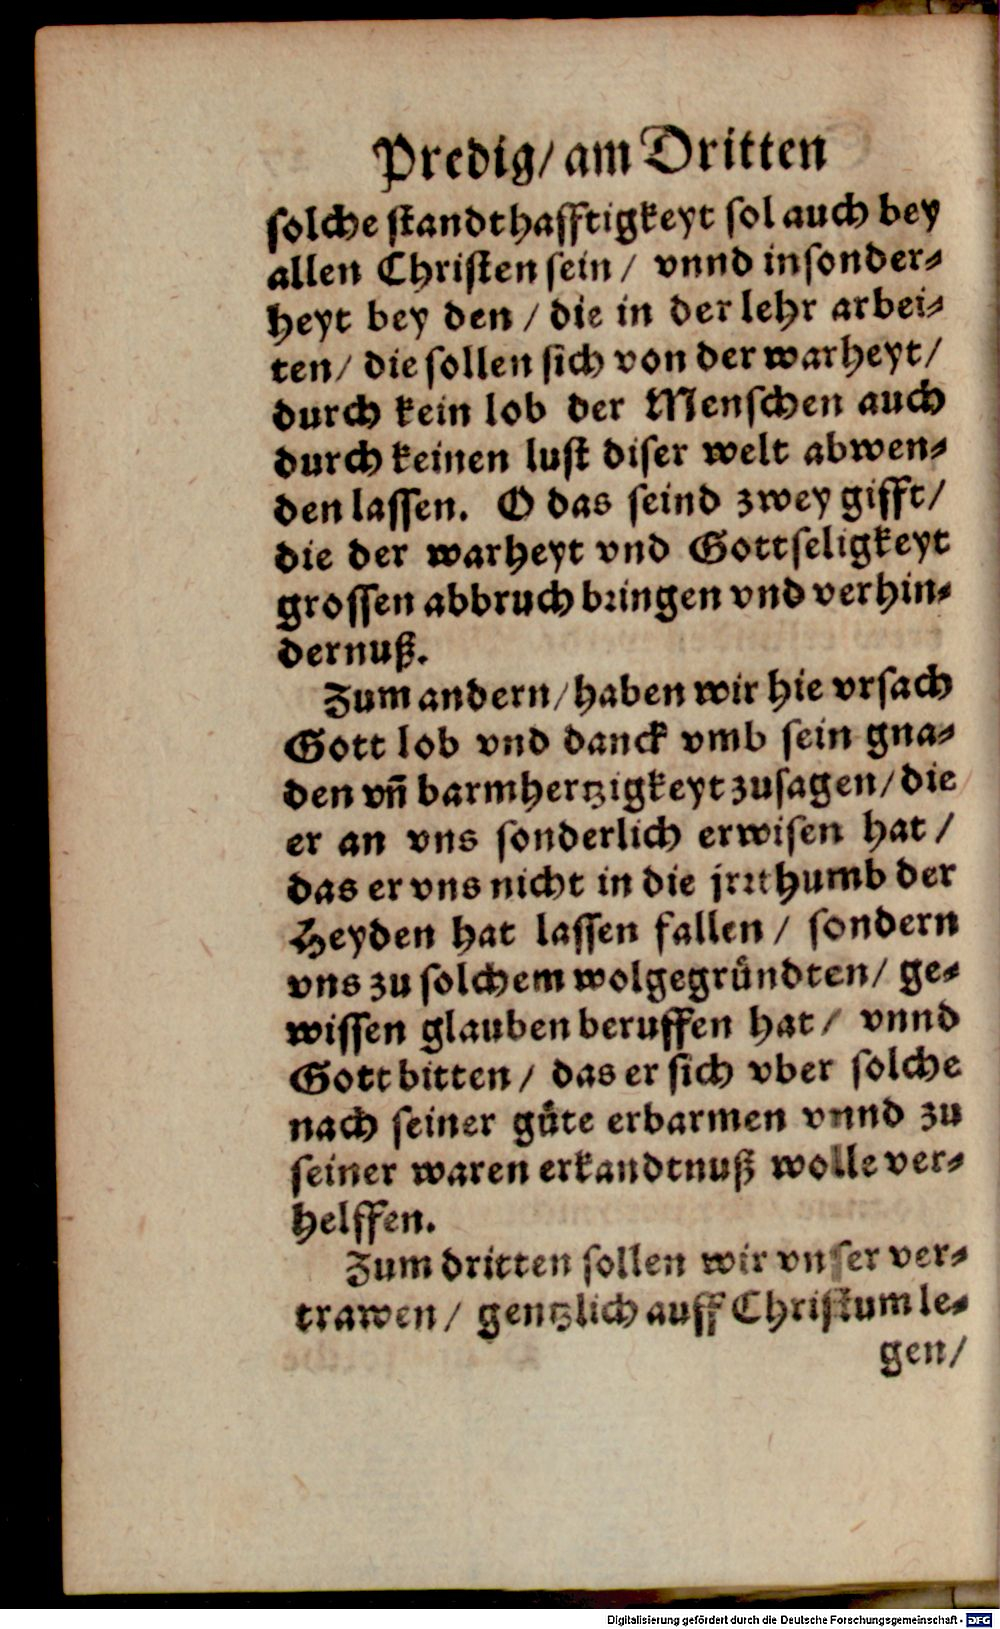 Predig/ am Dritten
solche standthafftigkeyt sol auch bey
allen Christen sein / vnnd insonder⸗
heyt bey den / die in der lehr arbei⸗
ten/ die sollen sich von der warheyt/
durch kein lob der Menschen auch
durch keinen lust diser welt abwen⸗
den lassen. O das seind zwey gifft/
die der warheyt vnd Gottseligkeyt
grossen abbruch bꝛingen vnd verhin⸗
dernuß.
Zum andern/ haben wir hie vrsach
Gott lob vnd danck vmb sein gna⸗
den vn̄ barmhertzigkeyt zusagen/ die
er an vns sonderlich erwisen hat /
das er vns nicht in die jrꝛthumb der
Heyden hat lassen fallen / sondern
vns zu solchem wolgegruͤndten/ ge⸗
wissen glauben beruffen hat/ vnnd
Gott bitten / das er sich vber solche
nach seiner guͤte erbarmen vnnd zu
seiner waren erkandtnuß wolle ver⸗
helffen.
Zum dritten sollen wir vnser ver⸗
trawen / gentzlich auff Christum le⸗
gen/
Digitalisierung gefördert durch die Deutsche Forschungsgemeinschaft - DFG